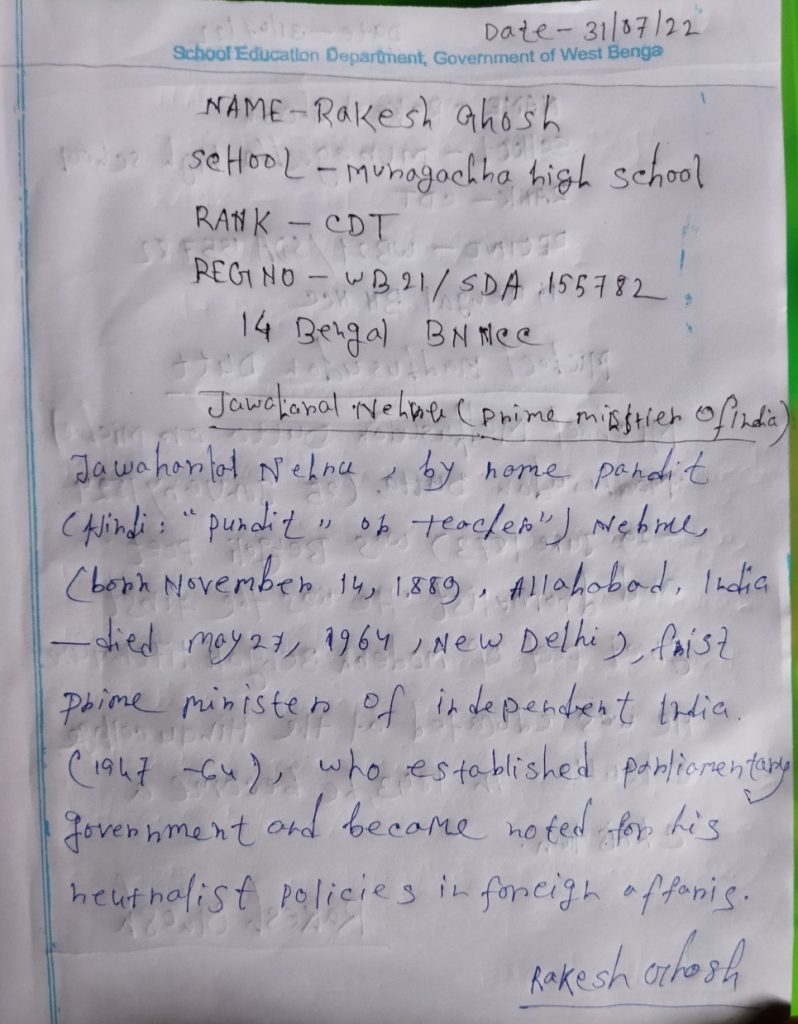 Date - 31/07/22
School Education Department, Government of West Benga
NAME - Rakesh Ghosh
SCHOOL - Muragachha high school
RANK - CDT
REGI NO - WB 21/SDA 155782
14 Bengal BN NCC
Jawaharal Nehru (prime minister Of india)
Jawaharlal Nehru, by name pandit
(Hindi: "pundit" or teacher") Nehru,
(born November 14, 1889, Allahabad, India
- died may 27, 1964, New Delhi), first
prime minister of independent India.
(1947 -64), who established parliamentary
government and became noted for his
neutralist policies in foreign affaris.
Rakesh Ghosh